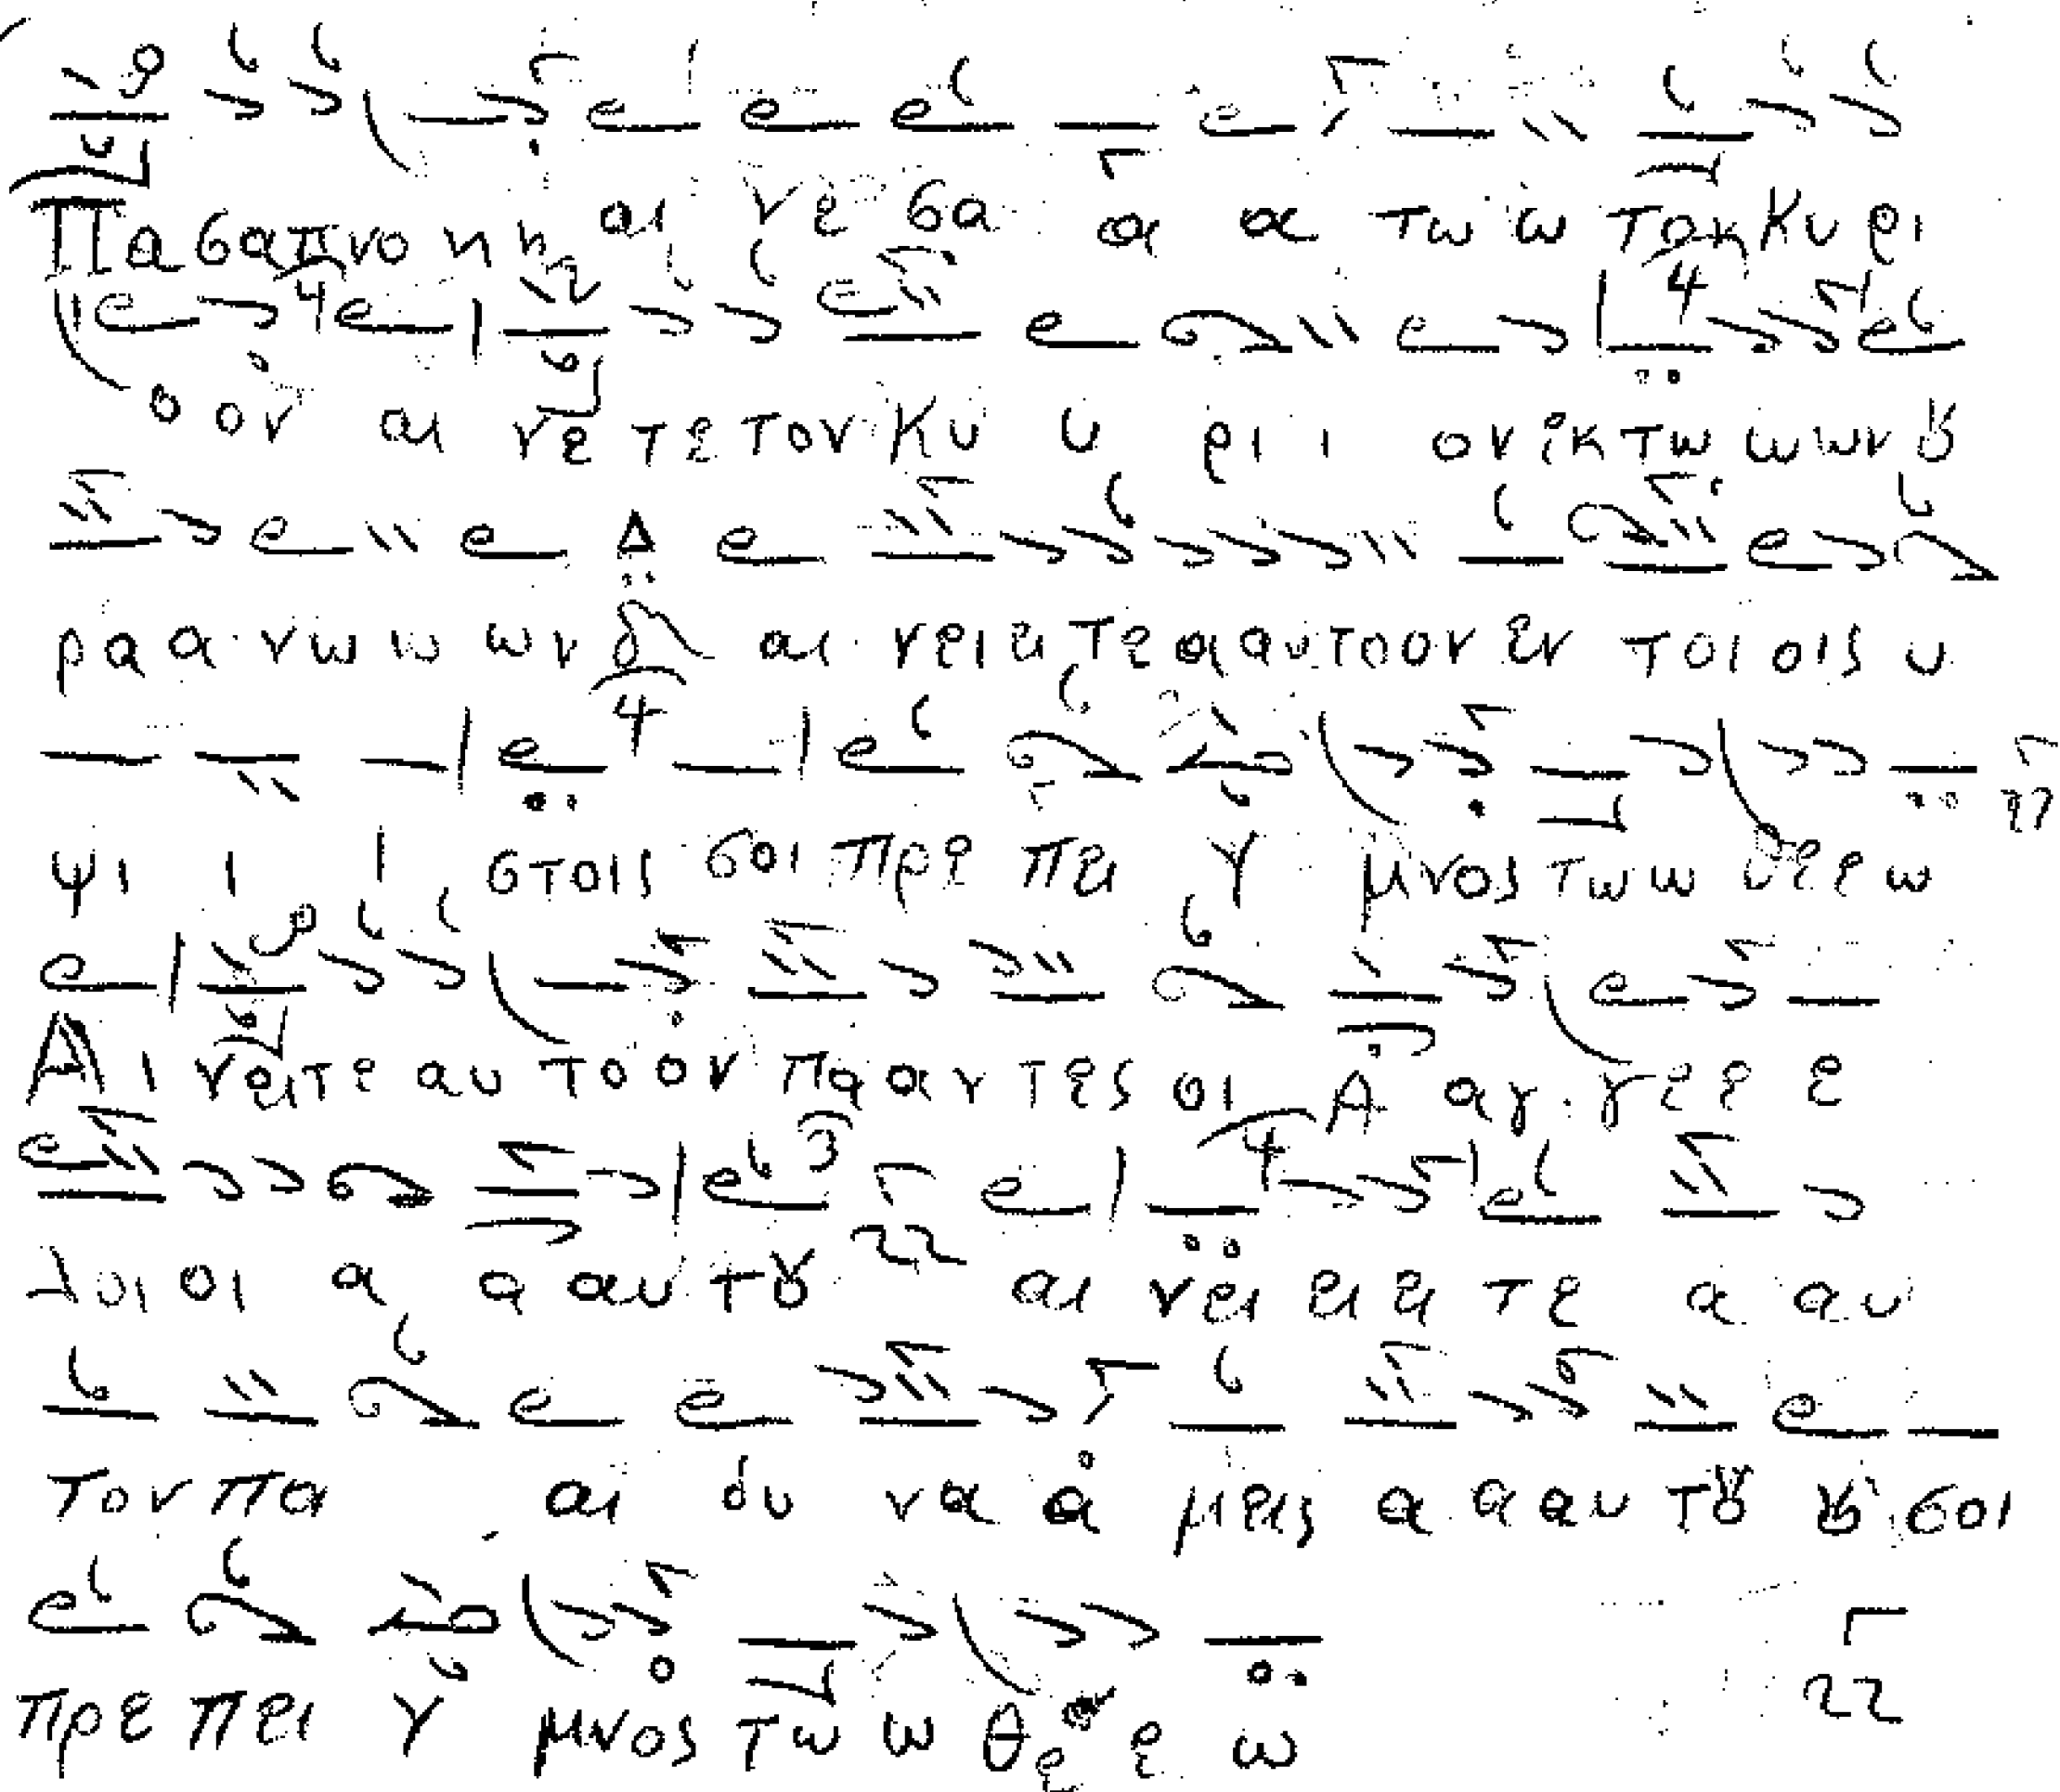 Πα σα πνο η η αι νε σα α α τω ω τον Κυ ρι
ο ον αι νε τε τον Κυ υ ρι ι ον εκ τω ω ων ȣ
ρα α νω ω ων δ αι νει ει τε α αυ το ον εν τοι οις υ
ψι ι ι στοις σοι πρε πει Υ μνος τω ω θε ε ω
Αι νειτε αυ το ον πα αν τες οι Α αγ γε ε ε
λοι οι α α αυ τȣ αι νει ει ει τε α αυ
τον πα αι δυ να α μεις α α αυ τȣ ȣ σοι
πρε πει Υ μνος τω ω θε ε ω